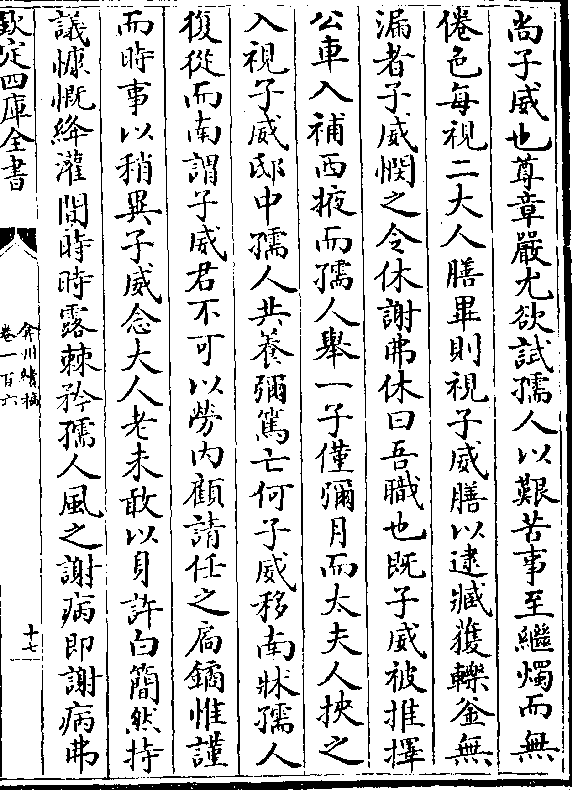 尚子威也尊章嚴尤欲試孺人以艱苦事至繼燭而無
倦色每視二大人膳畢則視子威膳以逮臧獲轢釜無
漏者子威憫之令休謝弗休曰吾職也既子威被推擇
公車入補西掖而孺人舉一子僅彌月而太夫人挾之
入視子威邸中孺人共養彌篤亡何子威移南牀孺人
復從而南謂子威君不可以勞内顧請任之扃鐍惟謹
而時事以稍異子威念大人老未敢以身許白簡然持
議慷慨絳灌間時時露棘矜孺人風之謝病即謝病弗
欽定四庫全書
弇州續稿
卷一百六
十七